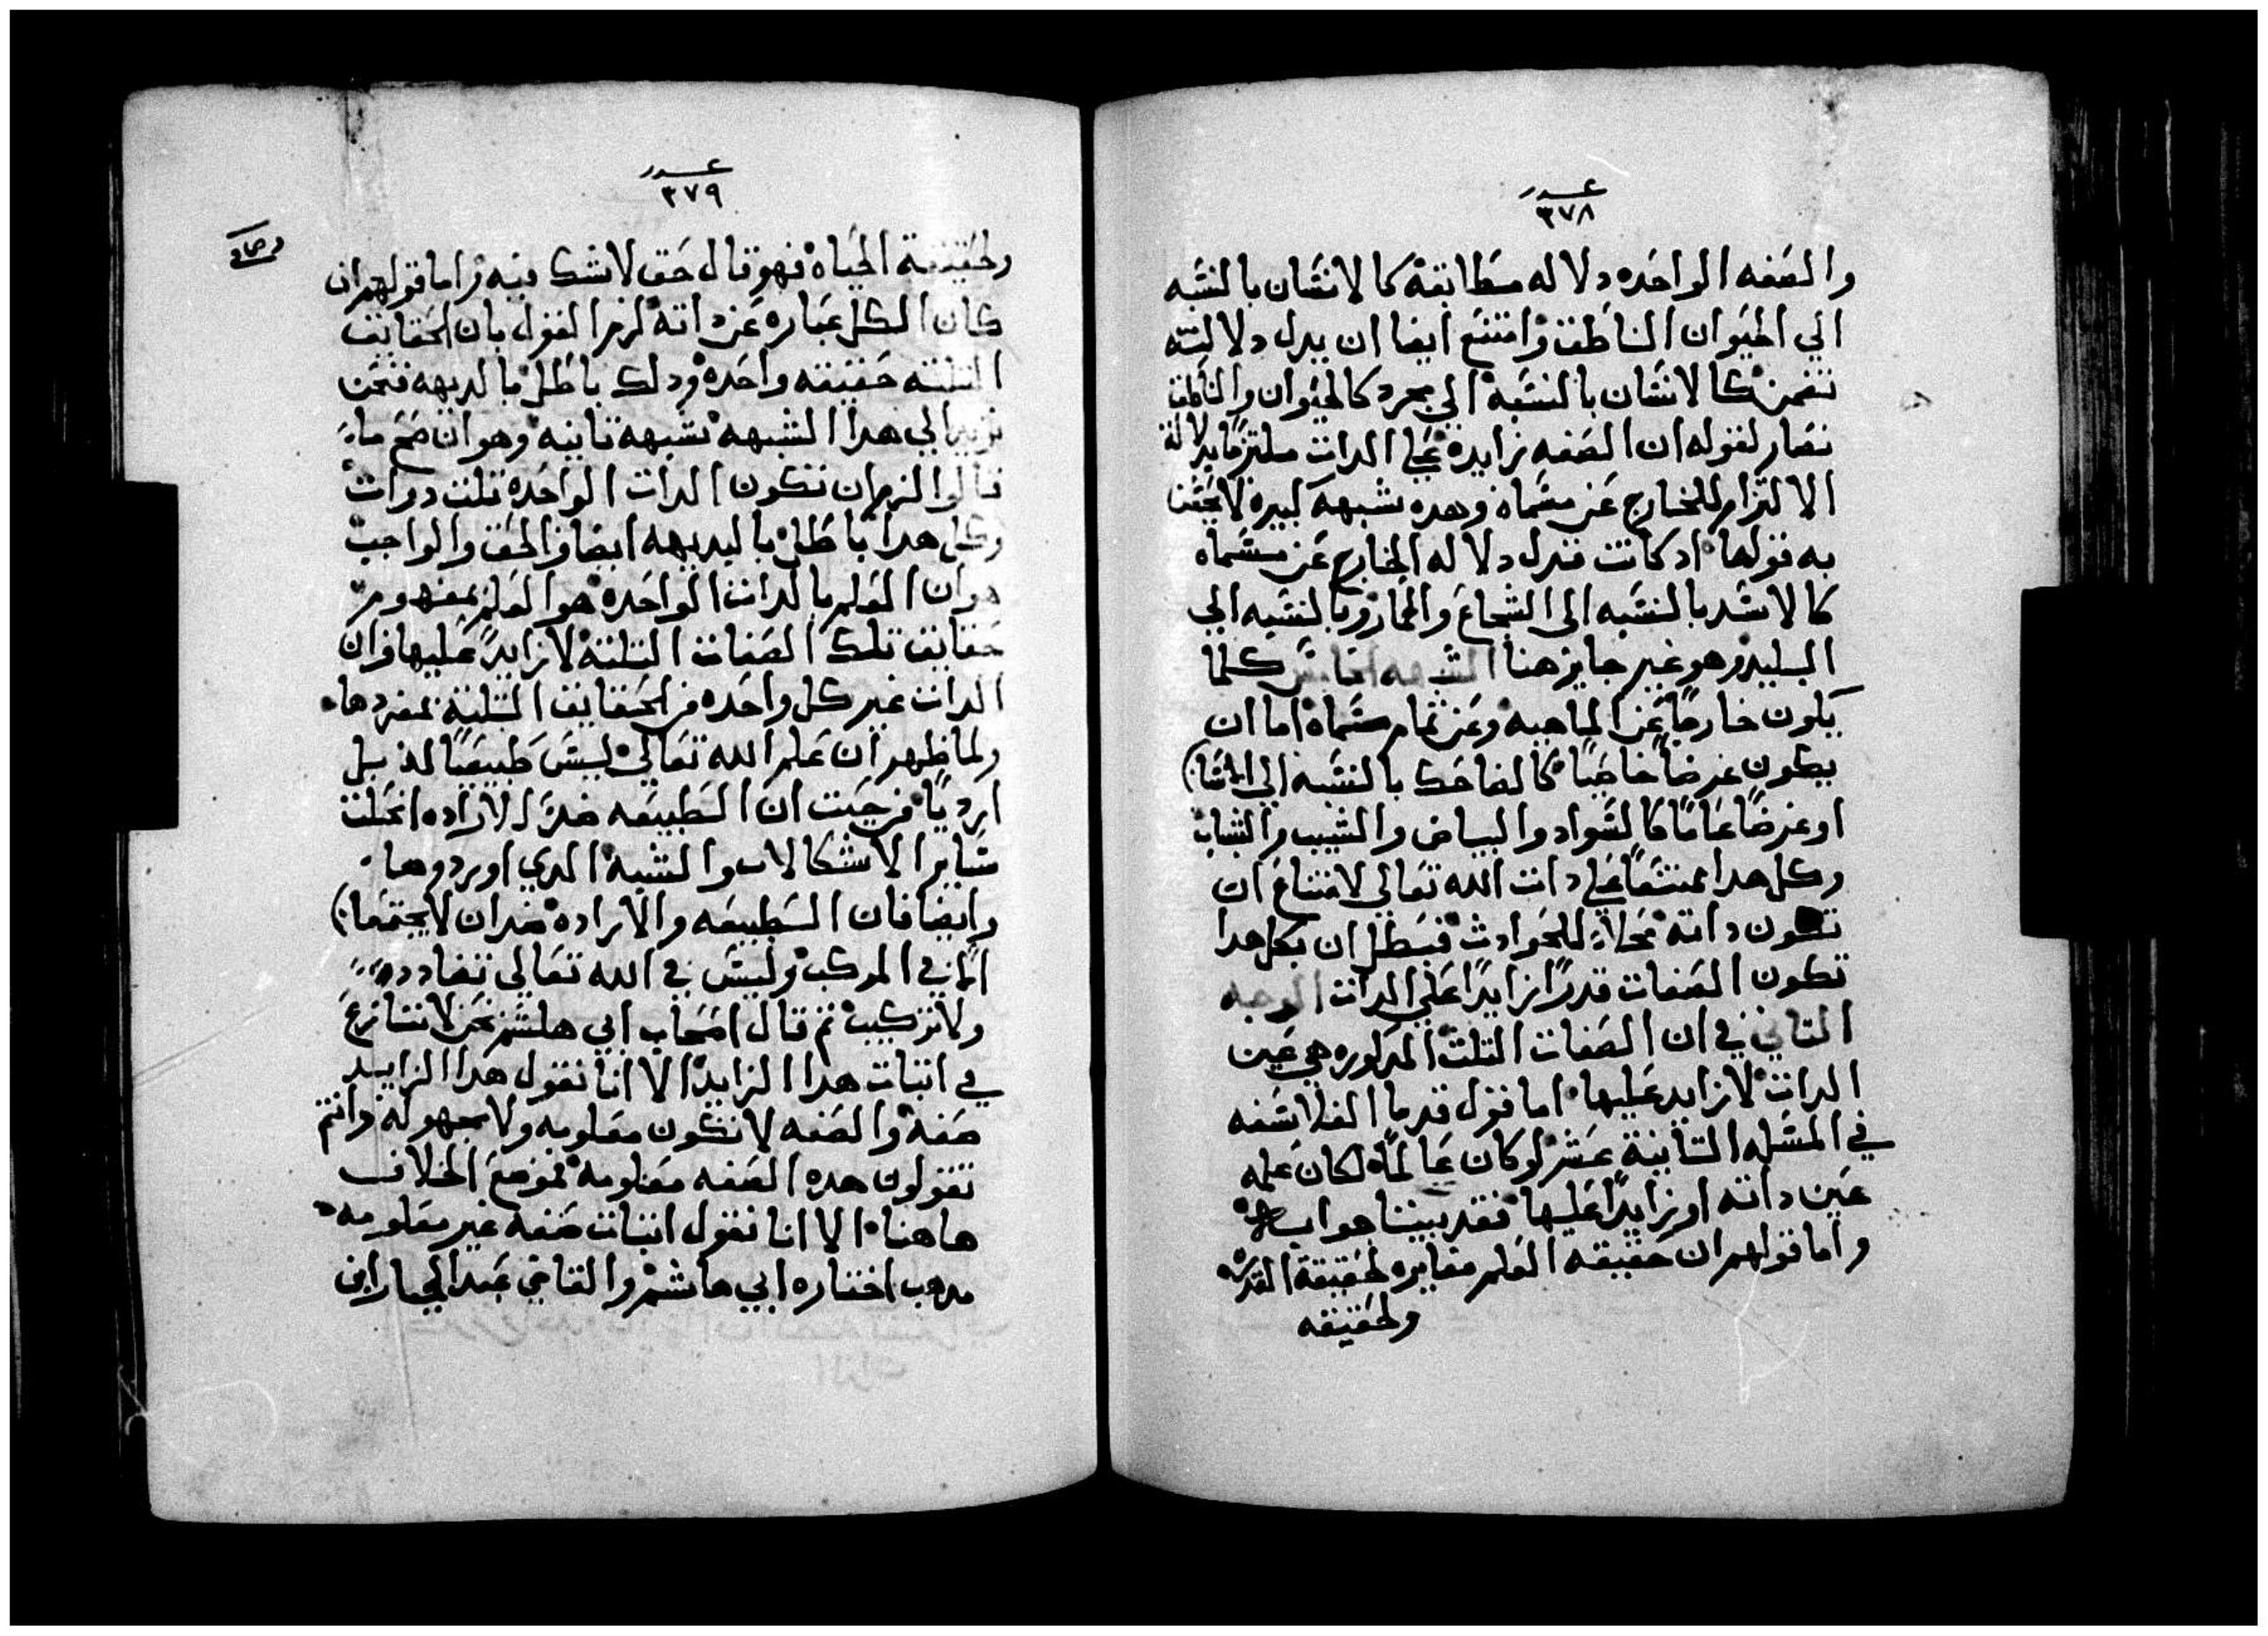 عدد
٣٧٨
والصفه الواحده دلاله مطابقة كالانسان بالنسبه
الي الحيوان الناطق وامتنع ايضا ان يدل دلالته
تضمن كالانسان بالنسبة الي مجرد كالحيوان والناطق
فصار لقوله ان الصفه زايدة علي الدات ملتزما بدلالة
الالتزام للخارج عن مسماه وهده شبهة كبيره لا
به قولها اد كانت تدل دلاله الخارج عن مسماه
كالاسد بالنسبه الى الشجاع والحمار بالنسبه الي
البليد وهو غير جايز هنا كلما
يكون خارجا عن الماهيه وعن تمام مسماه اما ان
يكون عرضا خاصيا كالضاحك بالنسبه الي
او عرضا عاما كالسواد والبياض والشيب والشباب
وكل هدا ممتنعا علي دات الله تعالي لامتناع ان
تكون داته محلا للحوادث فبطل ان بكل هدا
تكون الصفات قدرا زايدا علي الدات الوجه
التاني في ان الصفات التلت المدكوره هي عين
الدات لا زايد عليها اما قول قدما الفلاسفه
في المسله التانية عشر لو كان عالما لكان علمه
عين داته او زايدا عليها فقد بيننا جوابه
واما قولهم ان حقيقه العلم مغايره لحقيقة القدره
ولحقيقه
عدد
٣٧٩
ولحقيقة الحياه فهو قال حق لا شك فيه واما قولهم ان
كان الكل عباره عن داته لزم القول بان الحقايق
التلته حقيقه واحده ودلك باطل بالديهه فنحن
نزيد الي هدا الشبهه شبهه تانيه وهو ان صح ما
قالوا لزم ان تكون الدات الواحده تلت دوات
وكل هدا باطل بالبديهه ايضا والحق والواجب
هو ان العلم بالدات الواحده هو العلم بمفهوم
حقايق تلك الصفات التلتة لا زايد عليها وان
الدات غير كل واحده من الحقايق التلتة بمفردها
ولما ظهر ان علم الله تعالي ليس طبيعيا له بل
ارديا من حيت ان الطبيعه ضد الاراده انحلت
ساير الاشكالات والشبه الدي اوردوها
وايضا فان الطبيعه والاراده ضدان لا يجتمعا
الا في المركب وليس في الله تعالي تضادده
ولا تركيب تم قال اصحاب ابي هاشم نحن لا نتنازع
في اتبات هدا الزايد الا انا نقول هدا الزايد
صفة والصفه لا تكون معلومه ولا مجهوله وانتم
تقولون هده الصفه معلومة فموضع الخلاف
هاهنا الا انا نقول اتبات صفه غير معلومه
مدهب اختاره ابي هاشم والقاضي عبد الجبار ابن